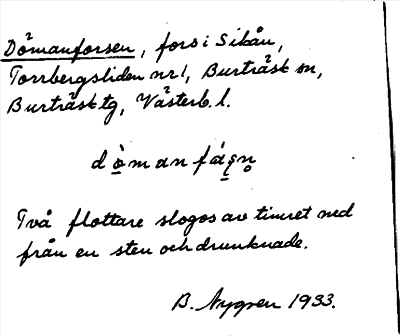 Dömanforsen, fors i Sikån,
Torrbergsliden nr 1, Burträsk sn,
Burträsk tg, Västerb. l.
dò̤manfá̤s̨n̥
Två flottare slogos av timret ned
från en sten och drunknade.
B. Nygren 1933.